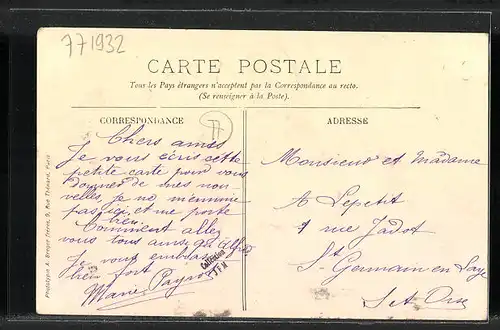 771932
CARTE POSTALE
Tous les Pays étrangers n'acceptent pas la Correspondance au recto.
(Se renseigner à la Poste).
CORRESPONDANCE
77
Chers amies
Je vous écris cette
petite carte pour vous
donner de mes nou-
velles je no m'ennuie
pas ici, et me porte
bien.
Comment allez
vous tous ainsi que Alfred
Je vous embrasse
bien fort
Marie
Collection
JFM
ADRESSE
Monsieur et Madame
A Lepetit
1 rue Jadot
St Germain en Laye
S et Oise
Phototypie A. Breger frères, 9, Rue Thénard, Paris